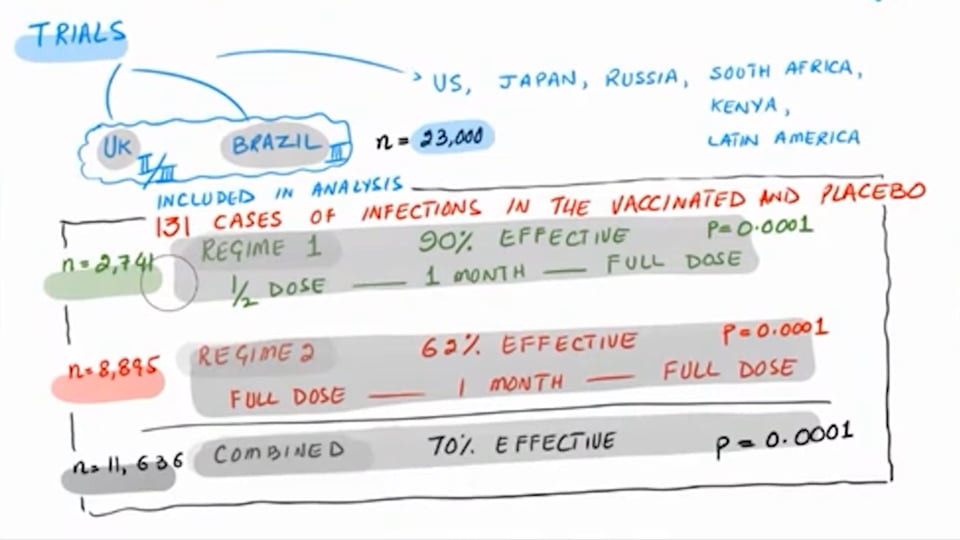 TRIALS
US, JAPAN, RUSSIA, SOUTH AFRICA,
KENYA,
LATIN AMERICA
UK II/III BRAZIL III n = 23,000
INCLUDED IN ANALYSIS
131 CASES OF INFECTIONS IN THE VACCINATED AND PLACEBO
n = 2,741 REGIME 1 90% EFFECTIVE P=0.0001
1/2 DOSE — 1 MONTH — FULL DOSE
n= 8,895 REGIME 2 62% EFFECTIVE P=0.0001
FULL DOSE — 1 MONTH — FULL DOSE
n= 11,636 COMBINED 70% EFFECTIVE P=0.0001